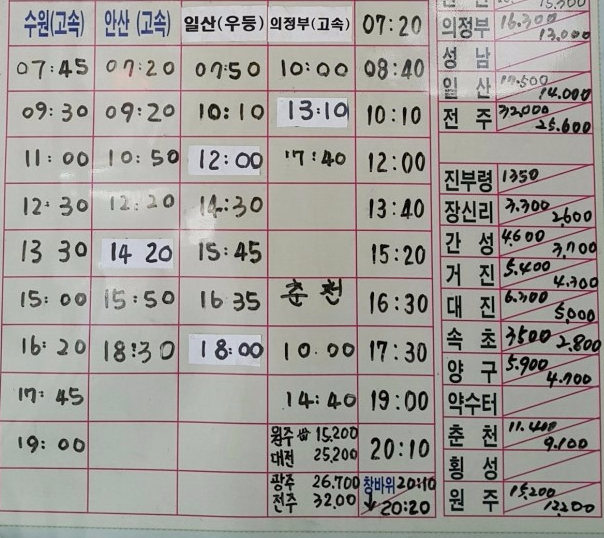 수원(고속) 안산 (고속) 일산(우등) 의정부(고속) 07:20
07:45 07:20 07:50 10:00 08:40
09:30 09:20 10:10 13:10 10:10
11:00 10:50 12:00 17:40 12:00
12:30 12:20 14:30 13:40
13 30 14 20 15:45 15:20
15:00 15:50 16:35 춘천 16:30
16:20 18:30 18:00 10.00 17:30
17:45 14:40 19:00
19:00 원주 15,200 20:10
대전 25,200
광주 26.700 창바위 20:10
전주 32.00 20:20
15,300
의정부 16.300 13,000
성남
일산 17,500 14.000
전주 32,000 25.600
진부령 1350
장신리 3.300 2,600
간성 4,600 3,700
거진 5.400 4.300
대진 6.300 5,000
속초 3500 2.800
양구 5.900 4.700
약수터
춘천 11.400 9.100
횡성
원주 15,200 12,200